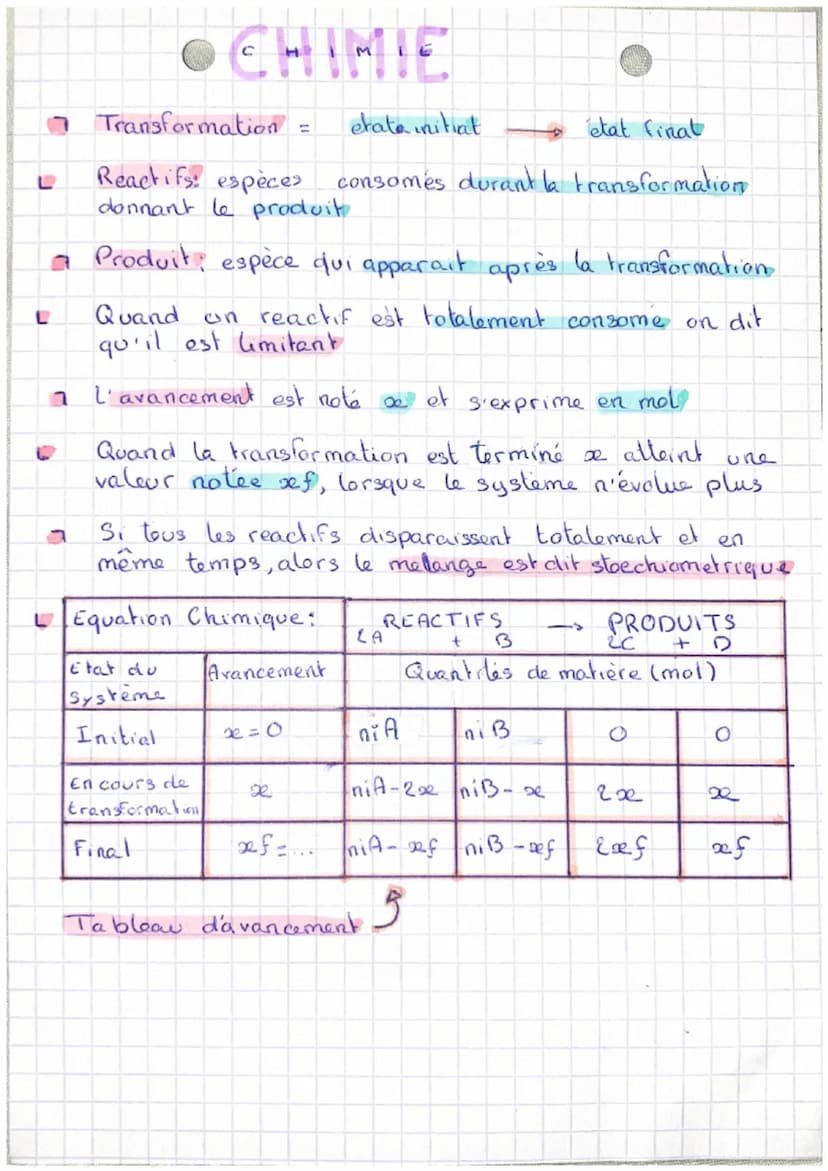 CHIMIE
Transformation = etata initial → état final
Reactifs: espèces consomés durant la transformation
donnant le produit
Produit: espèce qui apparait après la transformation
Quand un reactif est totalement consomé on dit
qu'il est limitant
L'avancement est noté x et s'exprime en mol
Quand la transformation est terminé x atteint une
valeur notée xf, lorsque le système n'évolue plus
Si tous les reactifs disparaissent totalement et en
même temps, alors le melange est dit stoechiometrique
Equation Chimique: REACTIFS → PRODUITS
2A + B 2C + D
Etat du Système Avancement Quantités de matière (mol)
Initial x = 0 niA niB 0 0
En cours de transformation x niA-2x niB-x 2x x
Final xf=... niA-xf niB-xf 2xf xf
Tableau d'avancement